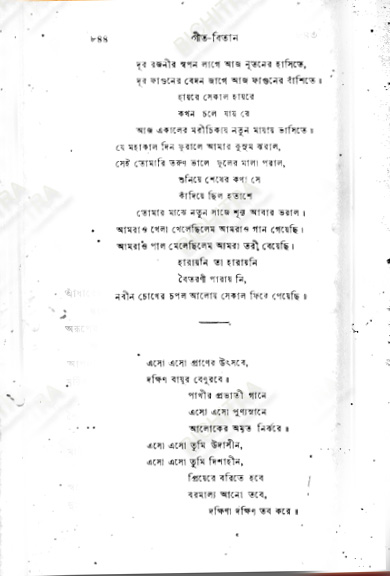 ৮৪৪ গীত-বিতান
দূর রজনীর স্বপন লাগে আজ নূতনের হাসিতে,
দূর ফাগুনের বেদন জাগে আজ ফাগুনের বাঁশিতে॥
হায়রে সেকাল হায়রে
কখন চলে যায় রে
আজ একালের মরীচিকায় নতুন মায়ায় ভাসিতে॥
যে মহাকাল দিন ফুরালে আমার কুসুম ঝরাল,
সেই তোমারি তরুণ ভালে ফুলের মালা পরাল,
শুনিয়ে শেষের কথা সে
কাঁদিয়ে ছিল হতাশে
তোমার মাঝে নতুন সাজে শূন্য আবার ভরাল।
আমরাও খেলা খেলেছিলেম আমরাও গান গেয়েছি।
আমরাও পাল মেলেছিলেম আমরা তরী বেয়েছি।
হারায়নি তা হারায়নি
বৈতরণী পারায় নি,
নবীন চোখের চপল আলোয় সেকাল ফিরে পেয়েছি॥
এসো এসো প্রাণের উৎসবে,
দক্ষিণ বায়ুর বেণুরবে॥
পাখীর প্রভাতী গানে
এসো এসো পুণ্যস্নানে
আলোকের অমৃত নির্ঝরে॥
এসো এসো তুমি উদাসীন,
এসো এসো তুমি দিশাহীন,
প্রিয়েরে বরিতে হবে
বরমাল্য আনো তবে,
দক্ষিণা দক্ষিণ তব করে॥